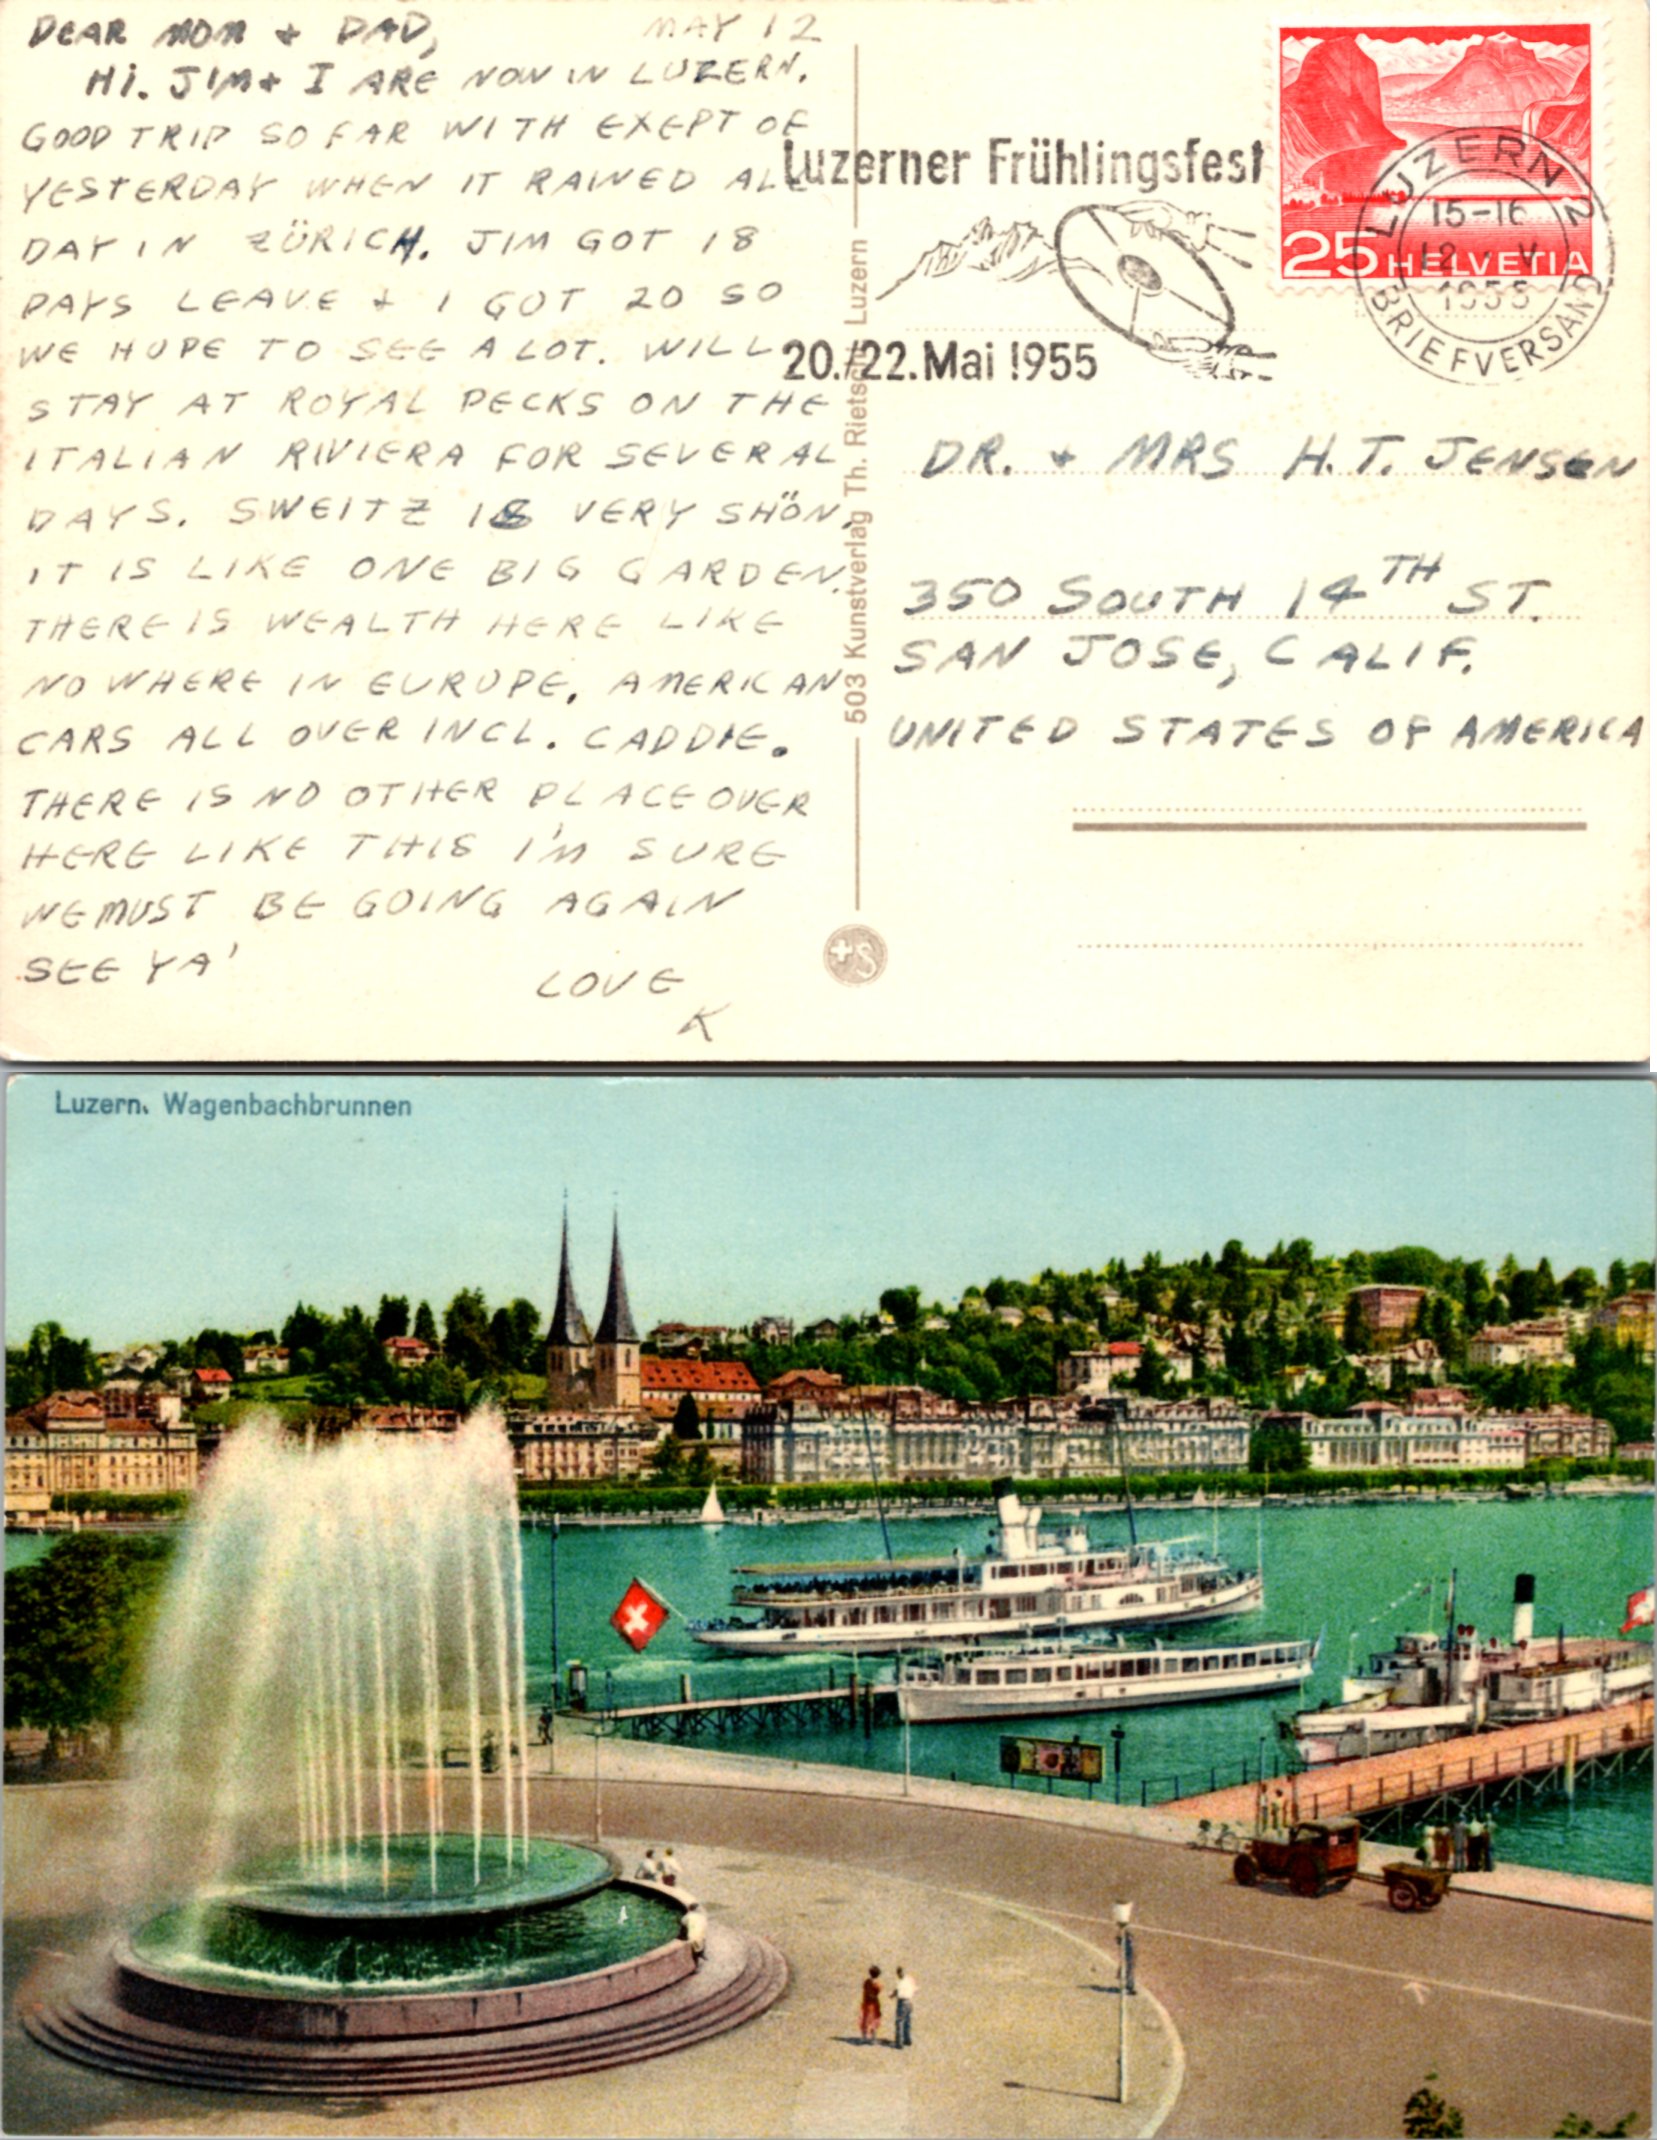 DEAR MOM + DAD, MAY 12
HI. JIM + I ARE NOW IN LUZERN.
GOOD TRIP SO FAR WITH EXEPT OF
YESTERDAY WHEN IT RAINED ALL
DAY IN ZÜRICH. JIM GOT 18
DAYS LEAVE + I GOT 20 SO
WE HOPE TO SEE A LOT. WILL
STAY AT ROYAL PECKS ON THE
ITALIAN RIVIERA FOR SEVERAL
DAYS. SWEITZ IS VERY SHÖN.
IT IS LIKE ONE BIG GARDEN.
THERE IS WEALTH HERE LIKE
NO WHERE IN EUROPE. AMERICAN
CARS ALL OVER INCL. CADDIE.
THERE IS NO OTHER PLACE OVER
HERE LIKE THIS I'M SURE
WE MUST BE GOING AGAIN
SEE YA'
LOVE
K
503 Kunstverlag Th. Rietschi Luzern
+S
Luzerner Frühlingsfest
20./22. Mai 1955
25 HELVETIA
LUZERN 2
15-16
12. V
1955
BRIEFVERSAND
DR. + MRS H.T. JENSEN
350 SOUTH 14TH ST.
SAN JOSE, CALIF.
UNITED STATES OF AMERICA
Luzern. Wagenbachbrunnen